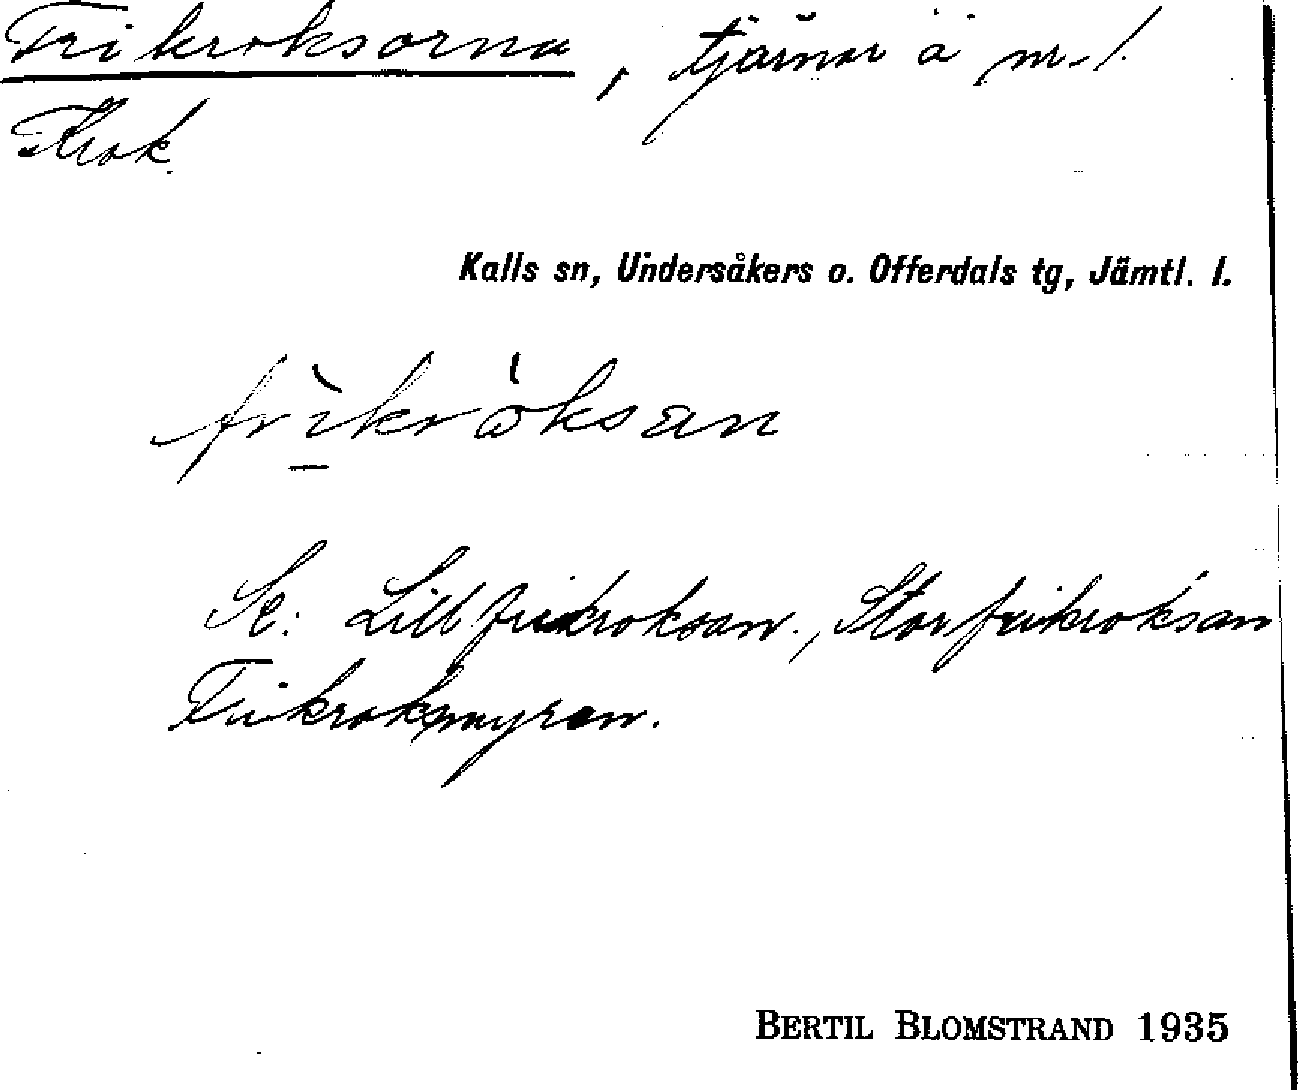 Frikroksorna, tjärnar å nr 1.
Krok
Kalls sn, Undersåkers o. Offerdals tg, Jämtl. l.
frìkróksan
Se: Lillfrikroksan., Storfrikroksan
Frikroksmyren.
BERTIL BLOMSTRAND 1935